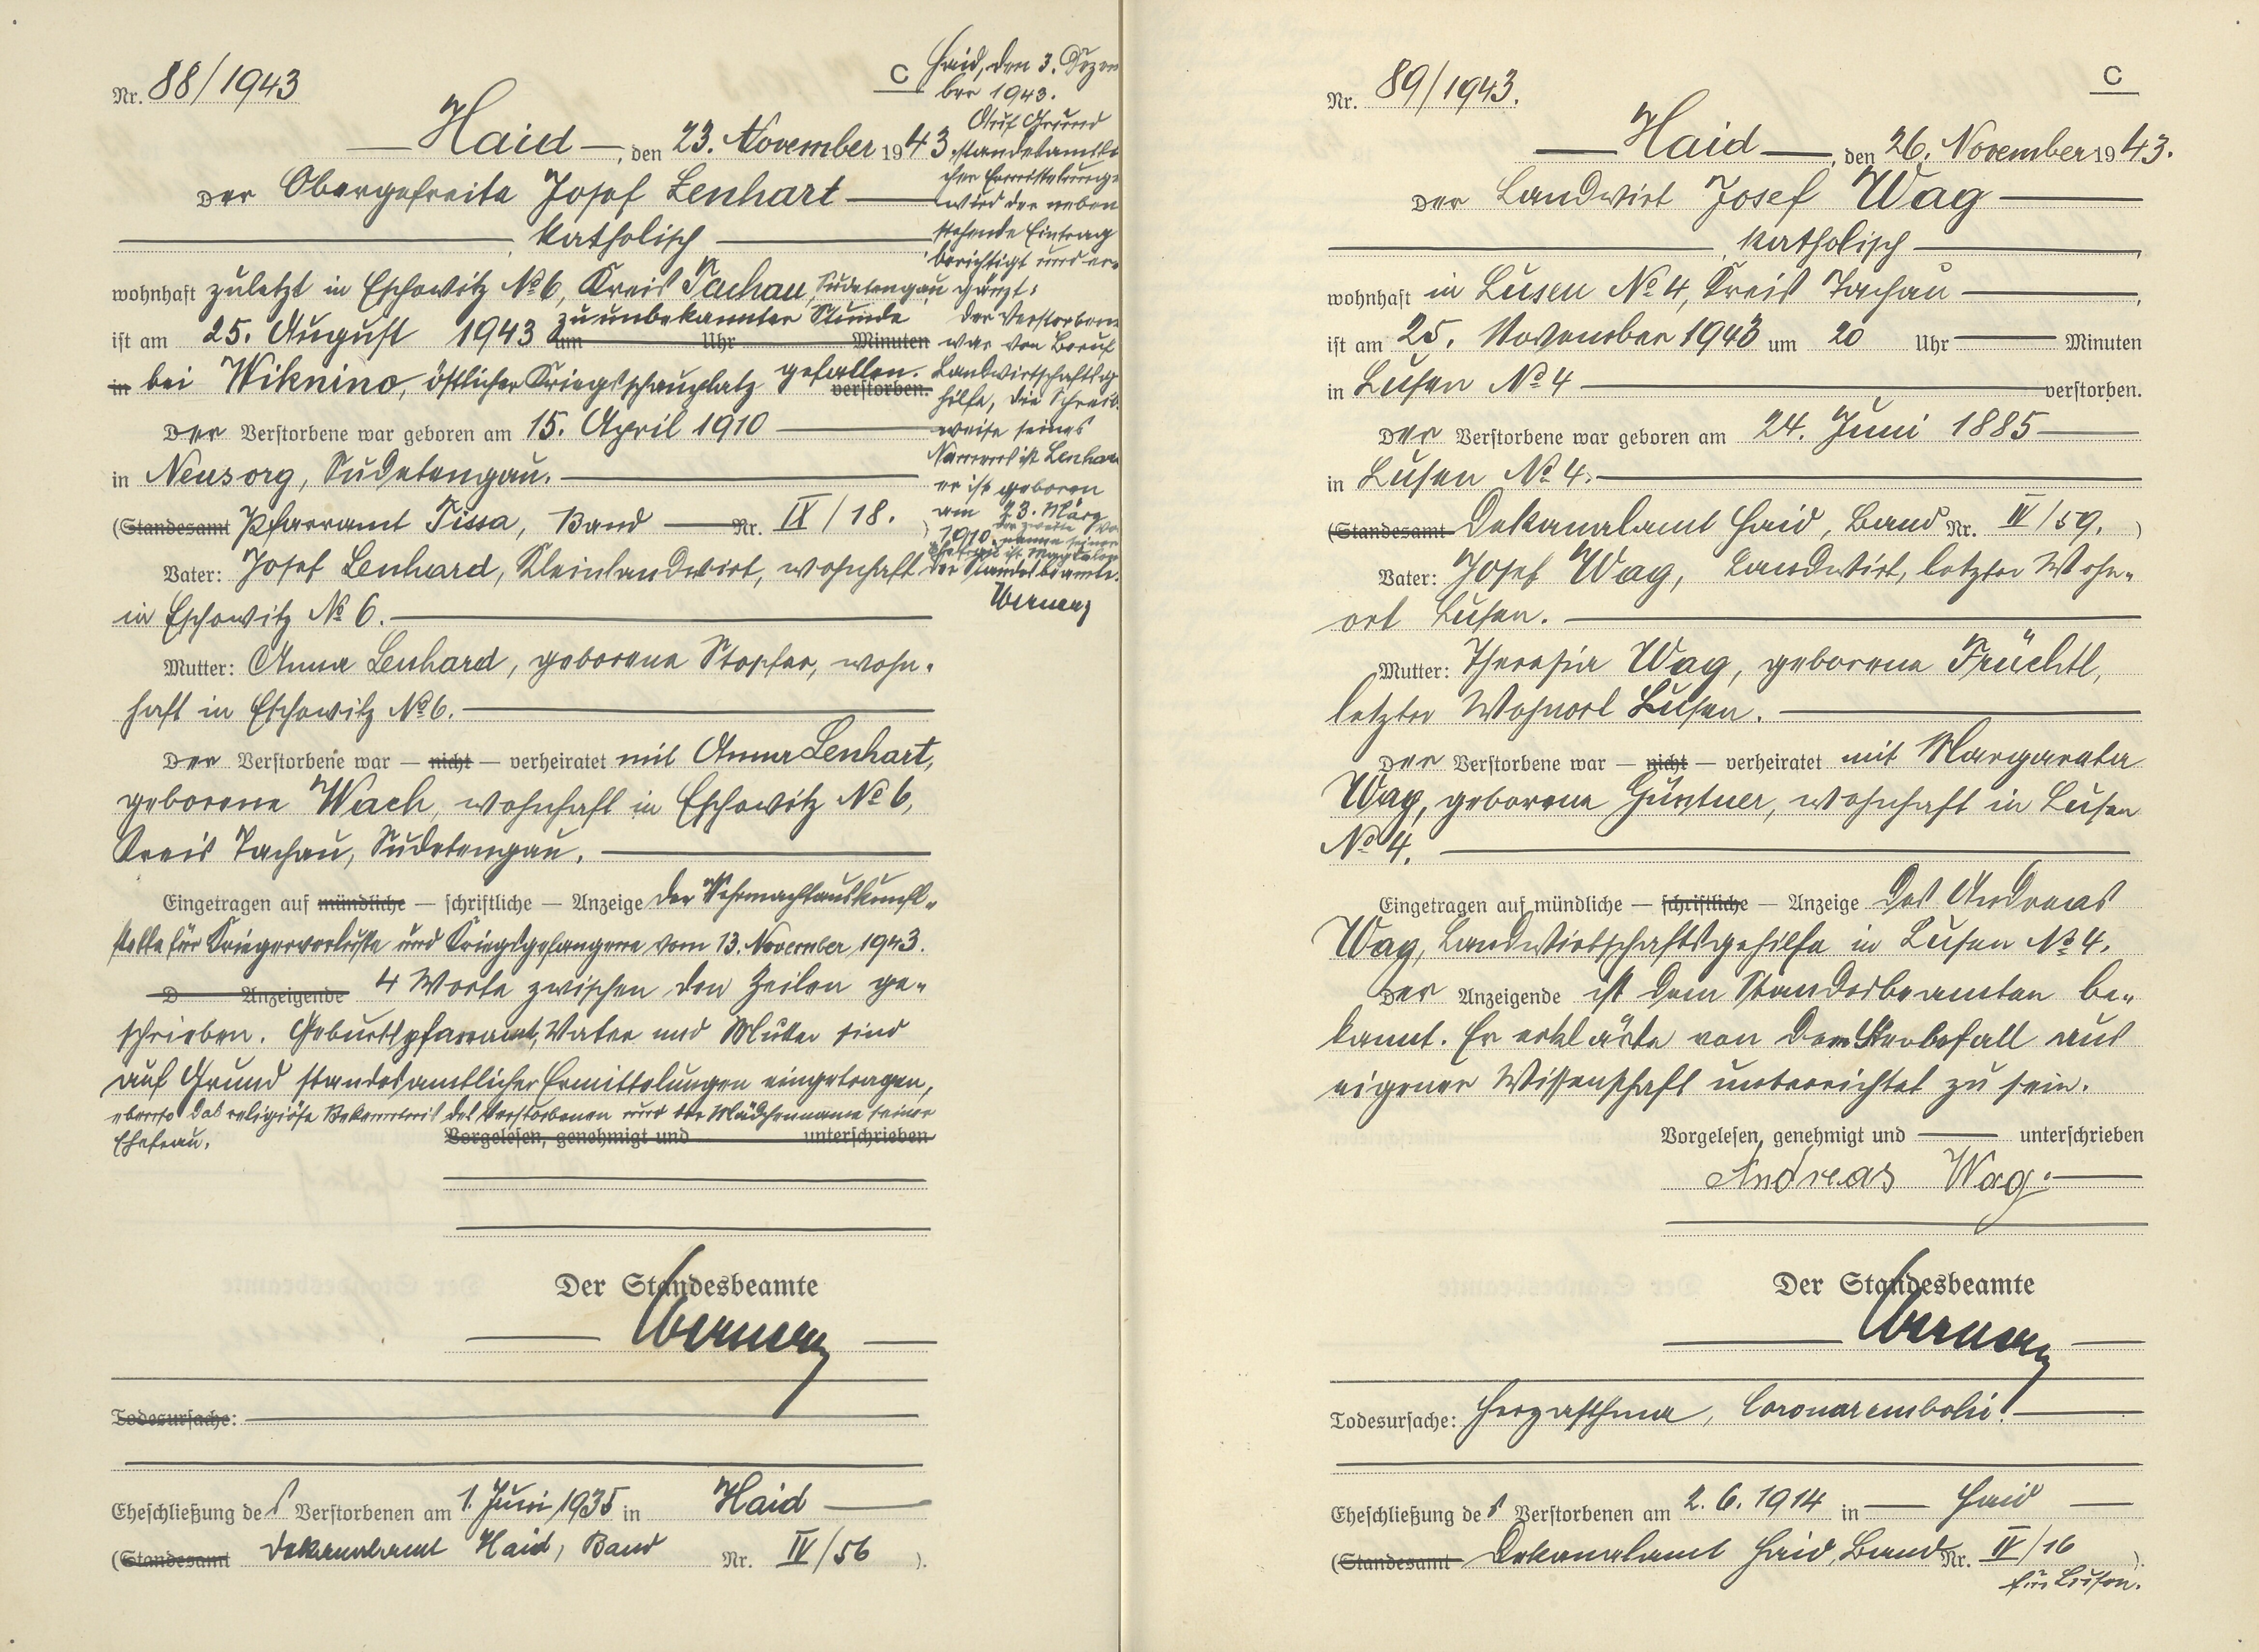 Nr. 88/1943
C
Haid, den 23. November 1943
Der Obergefreite Josef Lenhart
katholisch
wohnhaft zuletzt in Eschowitz No 6, Kreis Tachau, Sudetengau
zu unbekannter Stunde
ist am 25. August 1943 um Uhr Minuten
in bei Wiknino, östlicher Kriegsschauplatz gefallen. verstorben.
Der Verstorbene war geboren am 15. April 1910
in Neusorg, Sudetengau.
(Standesamt Pfarramt Tissa, Band Nr. IX/18. )
Vater: Josef Lenhard, Kleinlandwirt, wohnhaft
in Eschowitz No 6.
Mutter: Anna Lenhard, geborene Stopfer, wohn-
haft in Eschowitz No 6.
Der Verstorbene war — nicht — verheiratet mit Anna Lenhart,
geborene Wach, wohnhaft in Eschowitz No 6,
Kreis Tachau, Sudetengau.
Eingetragen auf mündliche — schriftliche — Anzeige der Wehrmachtauskunft-
stelle für Kriegerverluste und Kriegsgefangene vom 13. November 1943.
D Anzeigende 4 Worte zwischen den Zeilen ge-
schrieben. Geburtspfarramt, Vater und Mutter sind
auf Grund standesamtlicher Ermittelungen eingetragen,
ebenso das religiöse Bekenntnis des Verstorbenen und der Mädchenname seiner
Ehefrau.
Vorgelesen, genehmigt und unterschrieben
Der Standesbeamte
Todesursache:
Eheschließung des Verstorbenen am 1. Juni 1935 in Haid
(Standesamt Dekanalamt Haid, Band Nr. IV/56 ).
Haid, den 3. Dezem
ber 1943.
Auf Grund
standesamtli
cher Ermittelunge
wird der neben
stehende Eintrag
berichtigt und er-
gänzt:
Der Verstorbene
war von Beruf
Landwirtschaftsge
hilfe, die Schreib-
weise seines
Namens ist Lenhar
er ist geboren
am 23. März
1910. der zweite Vor
name seiner
Ehefrau ist Magdalen
Der Standesbeamte.
Nr. 89/1943.
C
Haid, den 26. November 1943.
Der Landwirt Josef Wag
katholisch
wohnhaft in Lusen No 4, Kreis Tachau,
ist am 25. November 1943 um 20 Uhr Minuten
in Lusen No 4 verstorben.
Der Verstorbene war geboren am 24. Juni 1885
in Lusen No 4.
(Standesamt Dekanalamt Haid, Band Nr. IV/59. )
Vater: Josef Wag, Landwirt, letzter Wohn-
ort Lusen.
Mutter: Theresia Wag, geborene Früchtl,
letzter Wohnort Lusen.
Der Verstorbene war — nicht — verheiratet mit Margareta
Wag, geborene Güntner, wohnhaft in Lusen
No 4.
Eingetragen auf mündliche — schriftliche — Anzeige des Andreas
Wag, Landwirtschaftsgehilfe in Lusen No 4.
Der Anzeigende ist dem Standesbeamten be-
kannt. Er erklärte von dem Sterbefall aus
eigener Wissenschaft unterrichtet zu sein.
Vorgelesen, genehmigt und unterschrieben
Andreas Wag.
Der Standesbeamte
Todesursache: Herzasthma, Coronarembolie.
Eheschließung des Verstorbenen am 2. 6. 1914 in Haid
(Standesamt Dekanalamt Haid, Band Nr. IV/16 ).
für Lusen.